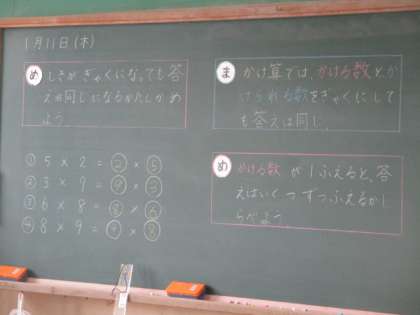 1月11日(木)
め しきが ぎゃくになっても答
えは同じになるかたしかめ
よう。
① 5 × 2 = 2 × 5
② 3 × 9 = 9 × 3
③ 6 × 8 = 8 × 6
④ 8 × 9 = 9 × 8
ま かけ算では、かける数とか
けられる数をぎゃくにして
も答えは同じ。
め かける数 が 1ふえると、答
えはいくつずつふえるかし
らべよう。